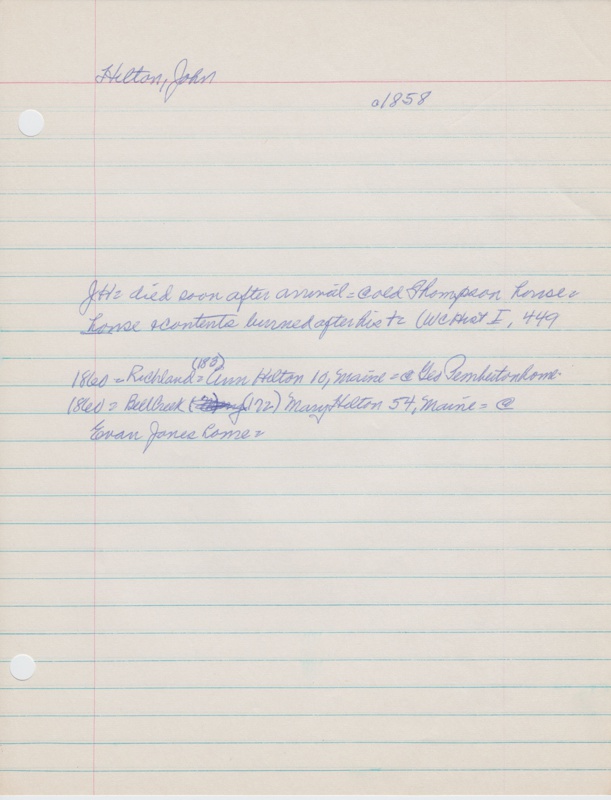 Hilton, John
a1858
JH= died soon after arrival = @ old Thompson house =
house & contents burned after his += (WC Hist I, 449
(183)
1860 = Richland = Ann Hilton 10, Maine = @ Geo Pemberton home.
1860 = Bell Creek (172) Mary Hilton 54, Maine = @
Evan Jones home =